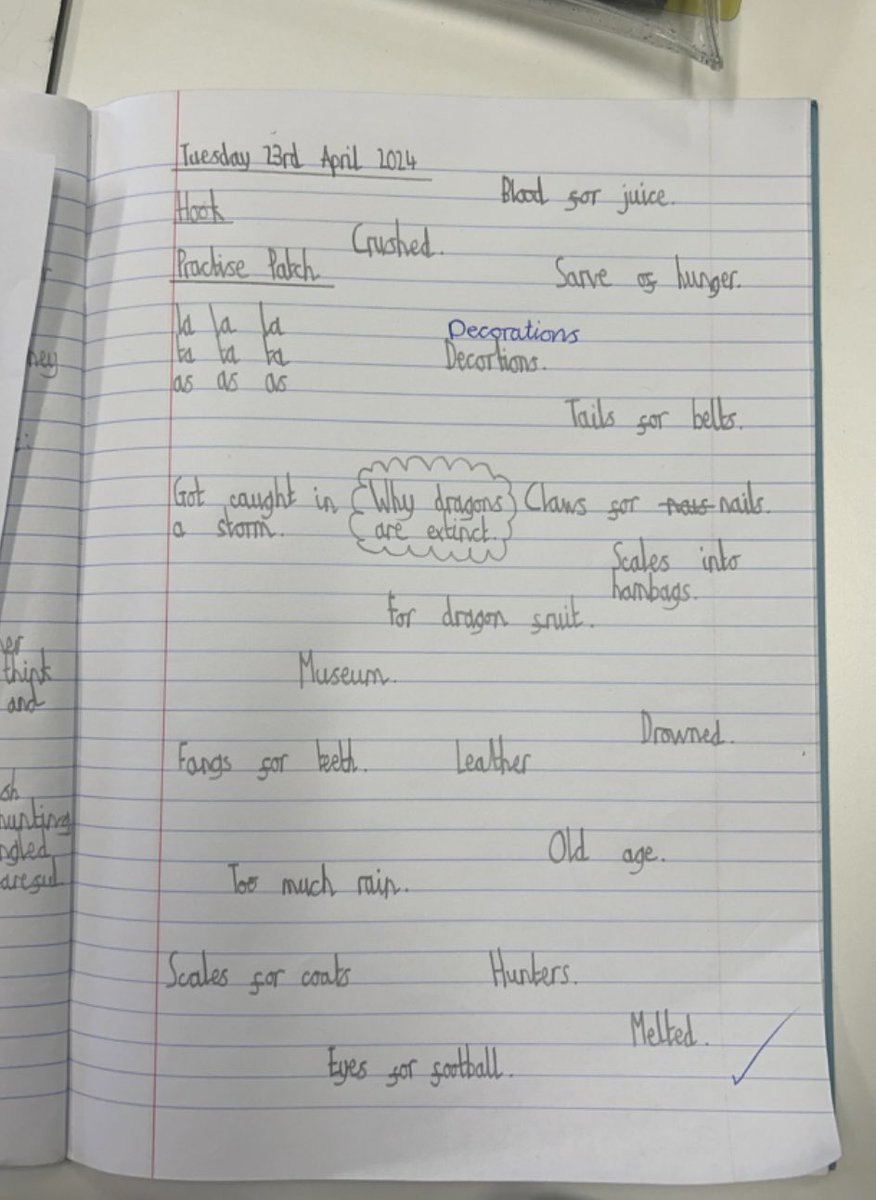 Tuesday 23rd April 2024
Blood for juice.
Hook
Crushed.
Practise Patch
Sarve of hunger.
la la la
ta ta ta
as as as
Decorations
Decortions.
Tails for belts.
Got caught in
a storm.
Why dragons
are extinct.
Claws for nails.
Scales into
hambags.
For dragon fruit.
Museum.
Drowned.
Fangs for teeth.
Leather
Old age.
Too much rain.
Scales for coats
Hunters.
Melted.
Eyes for football.
hey
er
think
and
sh
hunting
ngled
areful